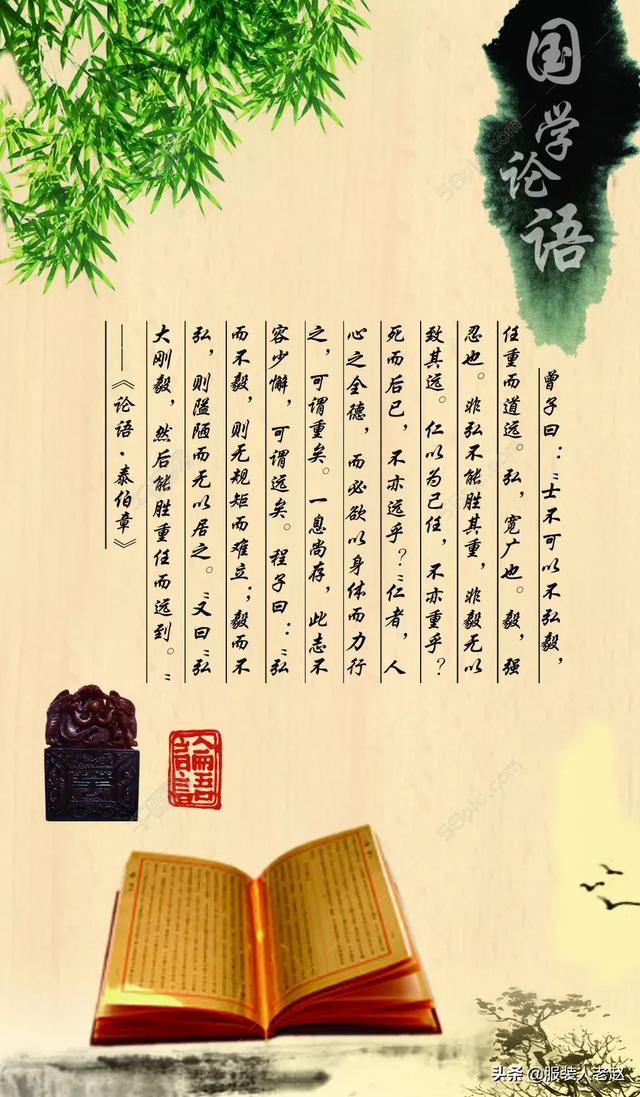 国学论语
曾子曰：“士不可以不弘毅，
任重而道远。弘，宽广也。毅，强
忍也。非弘不能胜其重，非毅无以
致其远。仁以为己任，不亦重乎？
死而后已，不亦远乎？“仁者，人
心之全德，而必欲以身体而力行
之，可谓重矣。一息尚存，此志不
容少懈，可谓远矣。程子曰：“弘
而不毅，则无规矩而难立；毅而不
弘，则隘陋而无以居之。“又曰“弘
大刚毅，然后能胜重任而远到。“
——《论语·泰伯章》
論語
头条 @服装人老赵